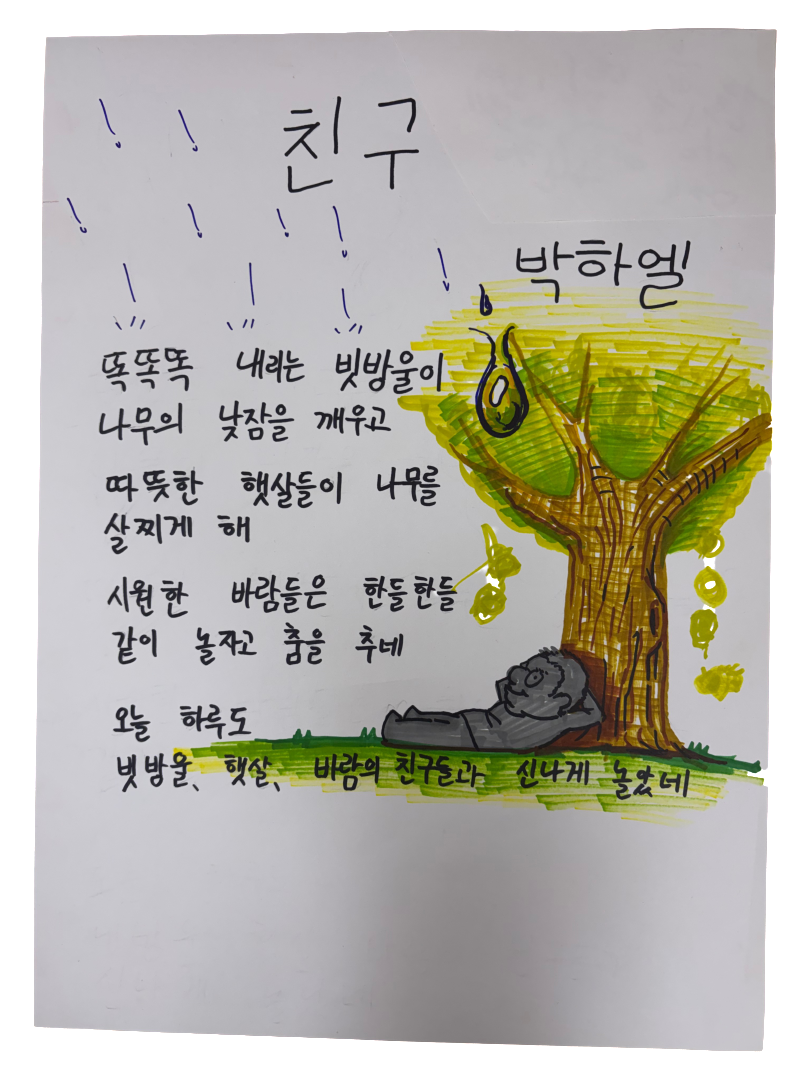 친구
박하엘
똑똑똑 내리는 빗방울이
나무의 낮잠을 깨우고
따뜻한 햇살들이 나무를
살찌게 해
시원한 바람들은 한들한들
같이 놀자고 춤을 추네
오늘 하루도
빗방울, 햇살, 바람의 친구들과 신나게 놀았네